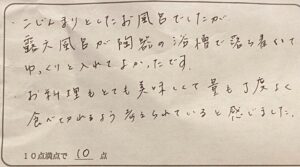 ・こじんまりとしたお風呂でしたが
露天風呂が陶器の浴槽で落ち着いて
ゆっくりと入れてよかったです。
・お料理もとても美味しくて量も丁度よく
食べ切れるよう考えられていると感じました。
10点満点で 10 点